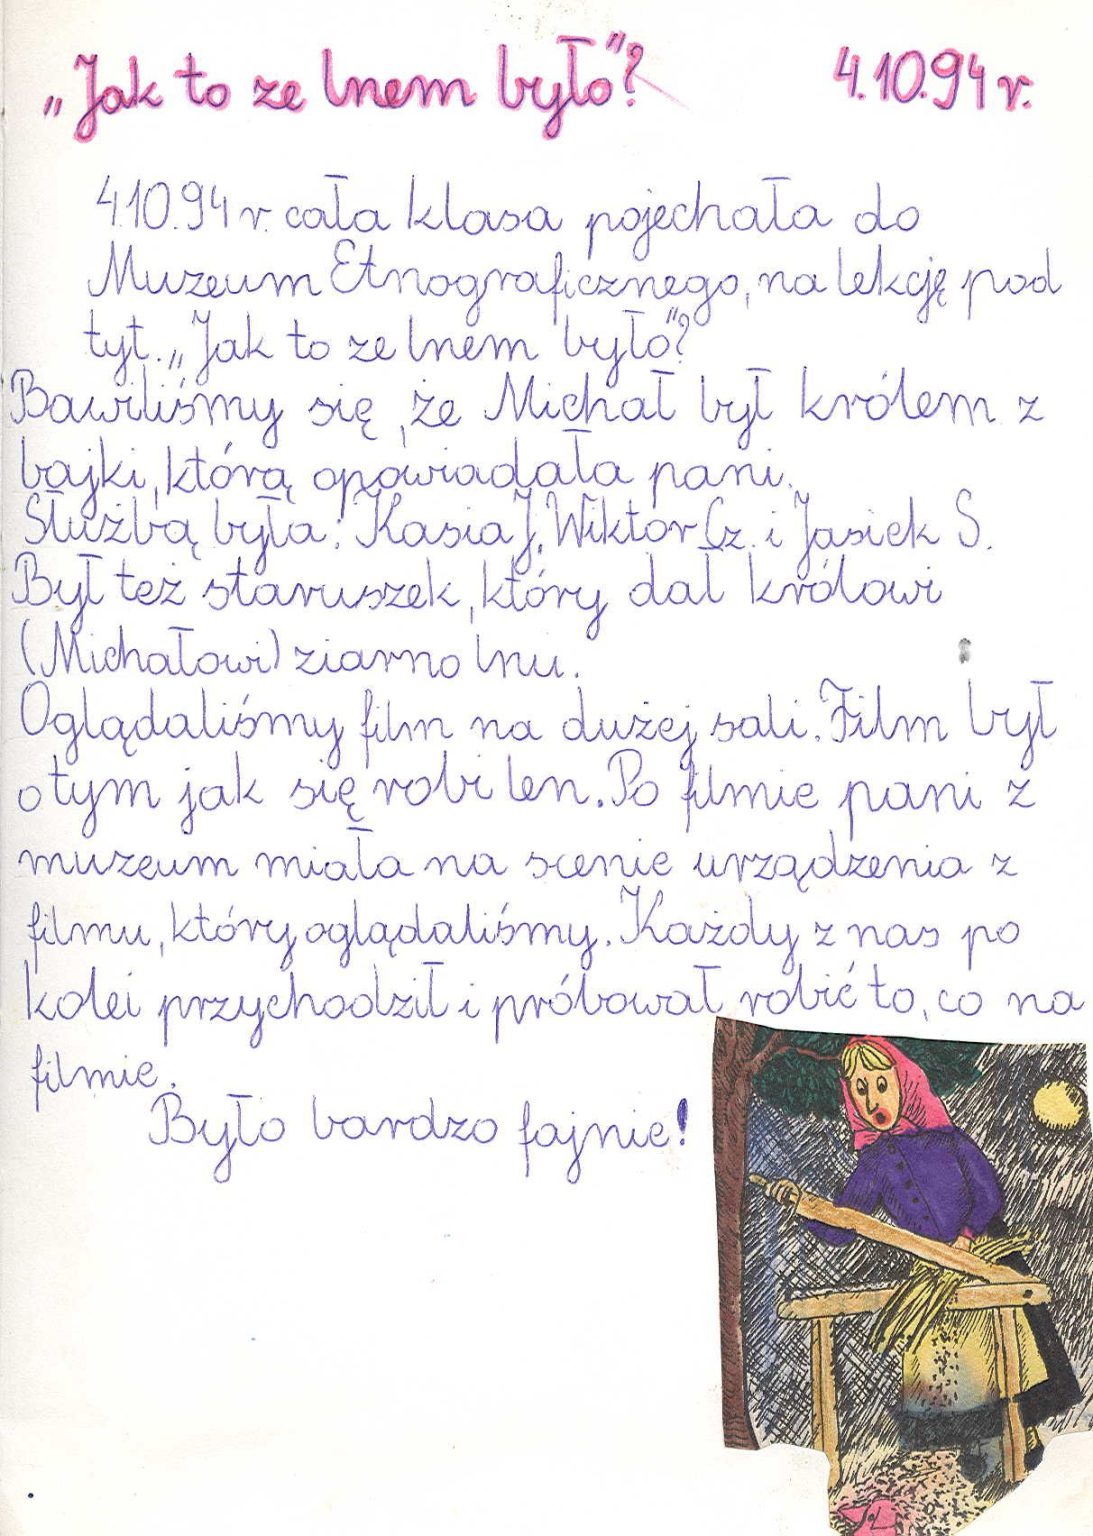 „Jak to ze lnem było”? 4.10.94 r.
4.10.94 r. cała klasa pojechała do
Muzeum Etnograficznego, na lekcję pod
tyt. „Jak to ze lnem było”?
Bawiliśmy się, że Michał był królem z
bajki, którą opowiadała pani.
Służbą była: Kasia J. Wiktor Cz. i Jasiek S.
Był też staruszek, który dał królowi
(Michałowi) ziarno lnu.
Oglądaliśmy film na dużej sali. Film był
o tym jak się robi len. Po filmie pani z
muzeum miała na scenie urządzenia z
filmu, który oglądaliśmy. Każdy z nas po
kolei przychodził i próbował robić to, co na
filmie.
Było bardzo fajnie!